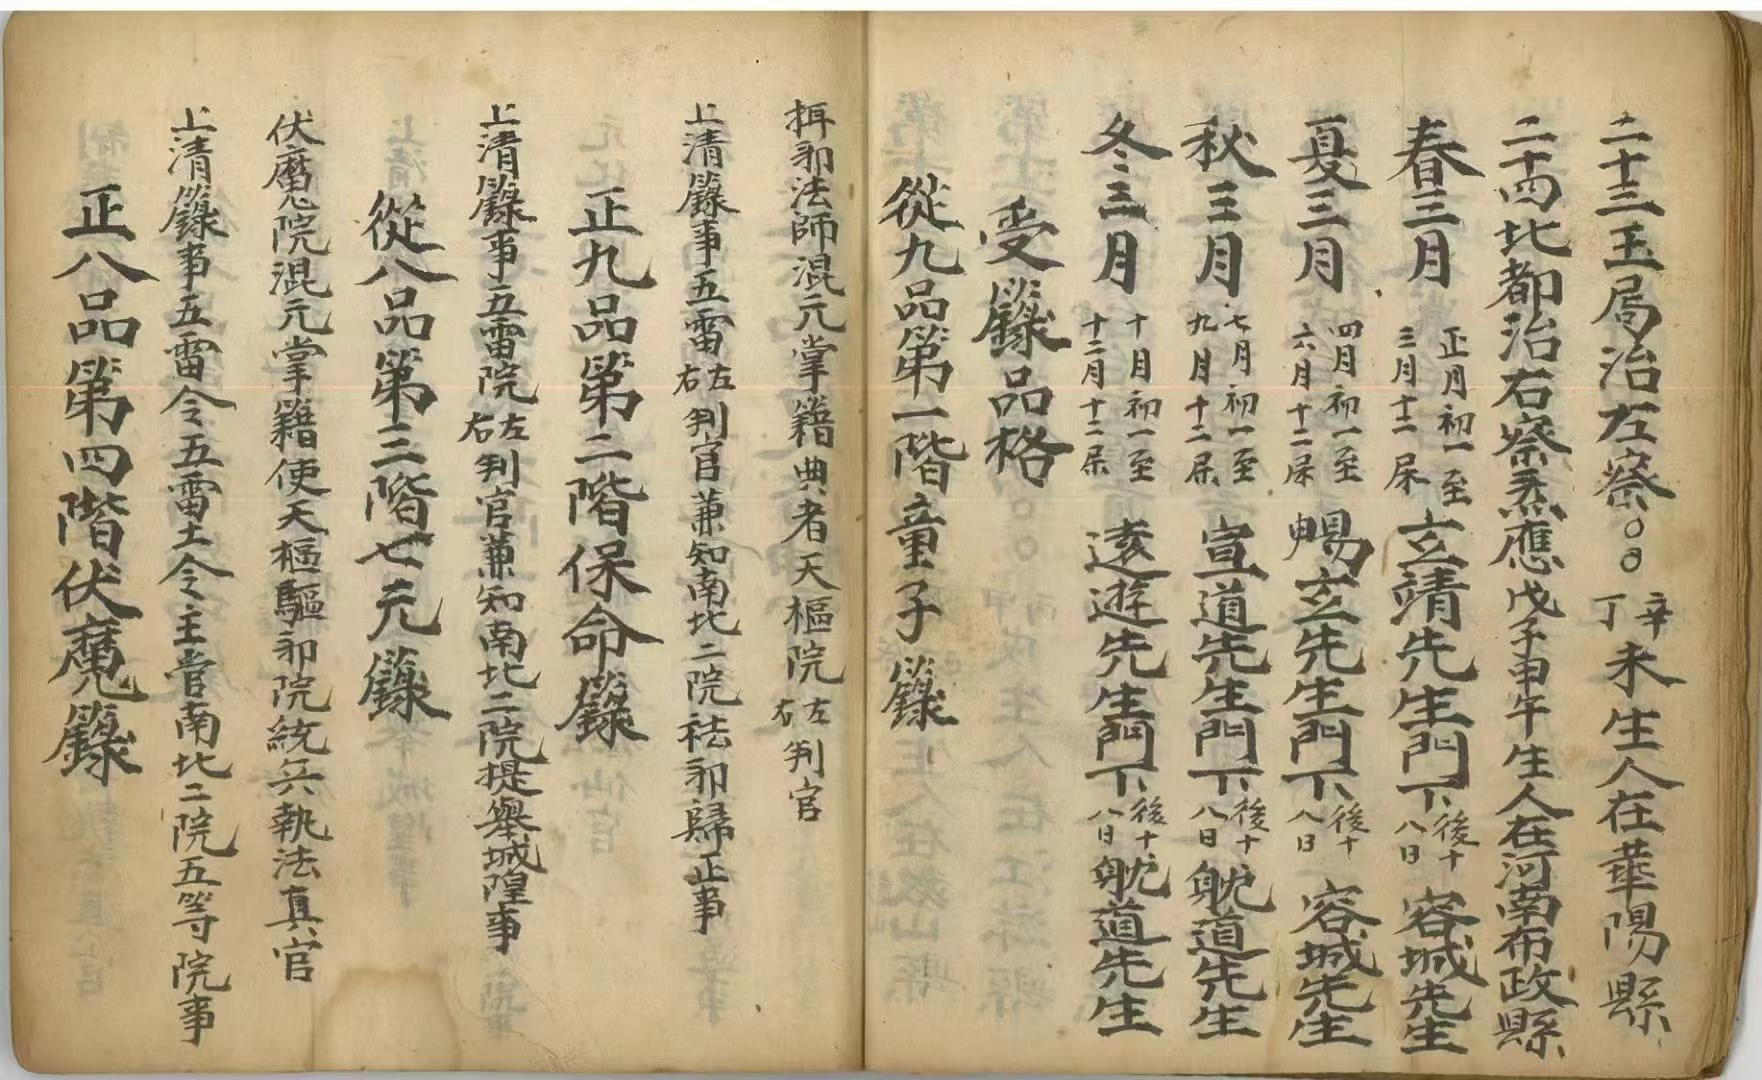 二十三玉局治左察〻〻辛丁未生人在華陽縣
二十四北都治右察炁應戊子申午生人在河南布政縣
春三月 正月初一至三月十二尿 玄靖先生門下 後十八日 容城先生
夏三月 四月初一至六月十二尿 暢玄先生門下 後十八日 容城先生
秋三月 七月初一至九月十二尿 宣道先生門下 後十八日 躭道先生
冬三月 十月初一至十二月十二尿 遠遊先生門下 後十八日 躭道先生
受籙品格
從九品第一階童子籙
㧕邪法師混元掌籍典者天樞院左右判官
上清籙事五雷左右判官兼知南北二院祛邪歸正事
正九品第二階保命籙
上清籙事五雷院左右判官兼知南北二院提舉城隍事
從八品第三階七元籙
伏魔院混元掌籍使天樞驅邪院統兵執法真官
上清籙事五雷令五雷土令主管南北二院五等院事
正八品第四階伏魔籙